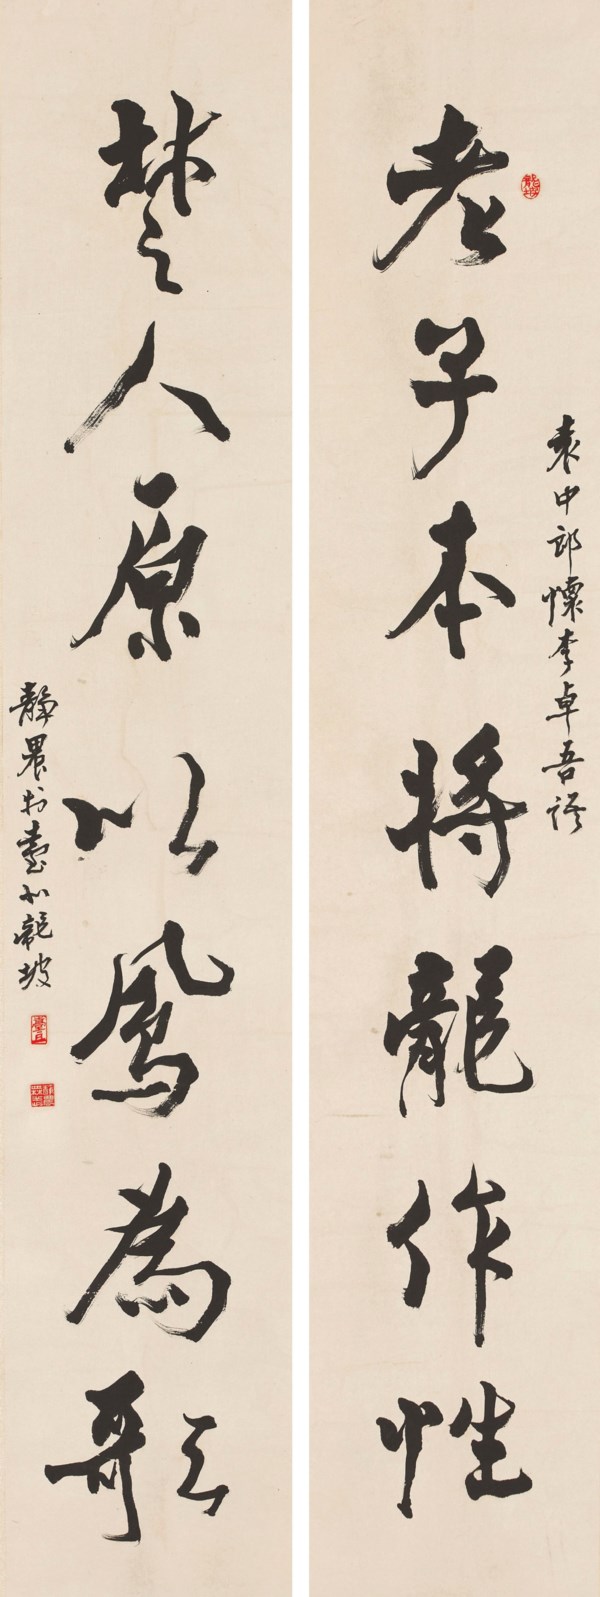 老子本將龍作性
袁中郎懷李卓吾語
楚人原以鳳為歌
靜農於臺北龍坡